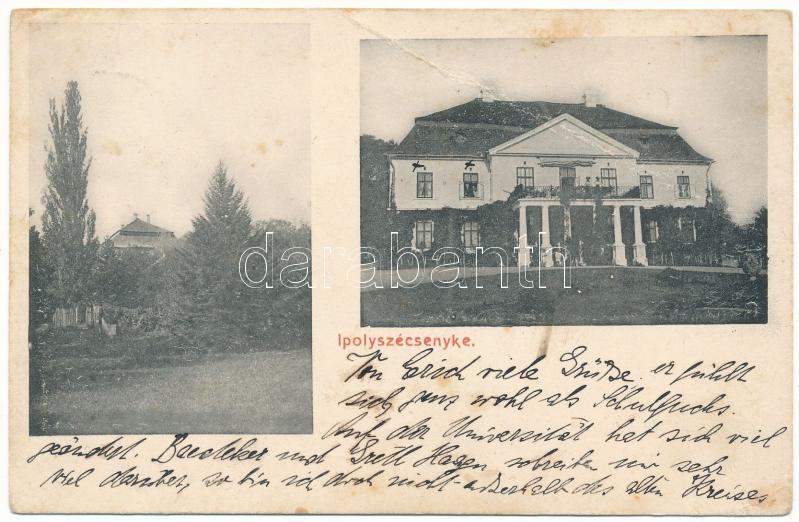 Ipolyszécsenyke.
Von Erich viele Grüße. er fühlt
sich ganz wohl als Schulfuchs.
Auf der Universität hat sich viel
geändert. Baedeker und Gretl Hagen schreiben mir sehr
viel darüber, so bin ich doch nicht außerhalb des alten Kreises
darabanth